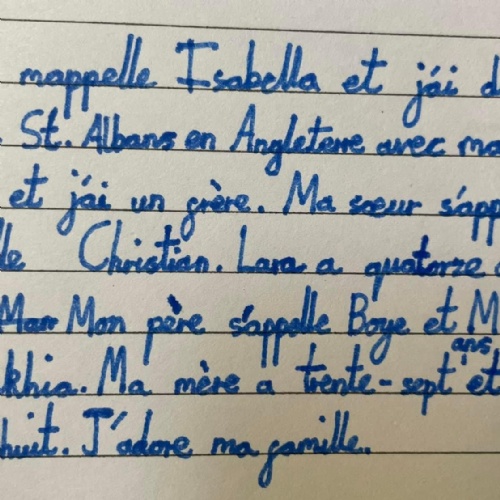 mappelle Isabella et j'ai d
St. Albans en Angleterre avec ma
et j'ai un frère. Ma sœur s'app
lle Christian. Lara a quatorze
Mar Mon père s'appelle Boye et M
khia. Ma mère a trente-sept ans et
huit. J'adore ma famille.